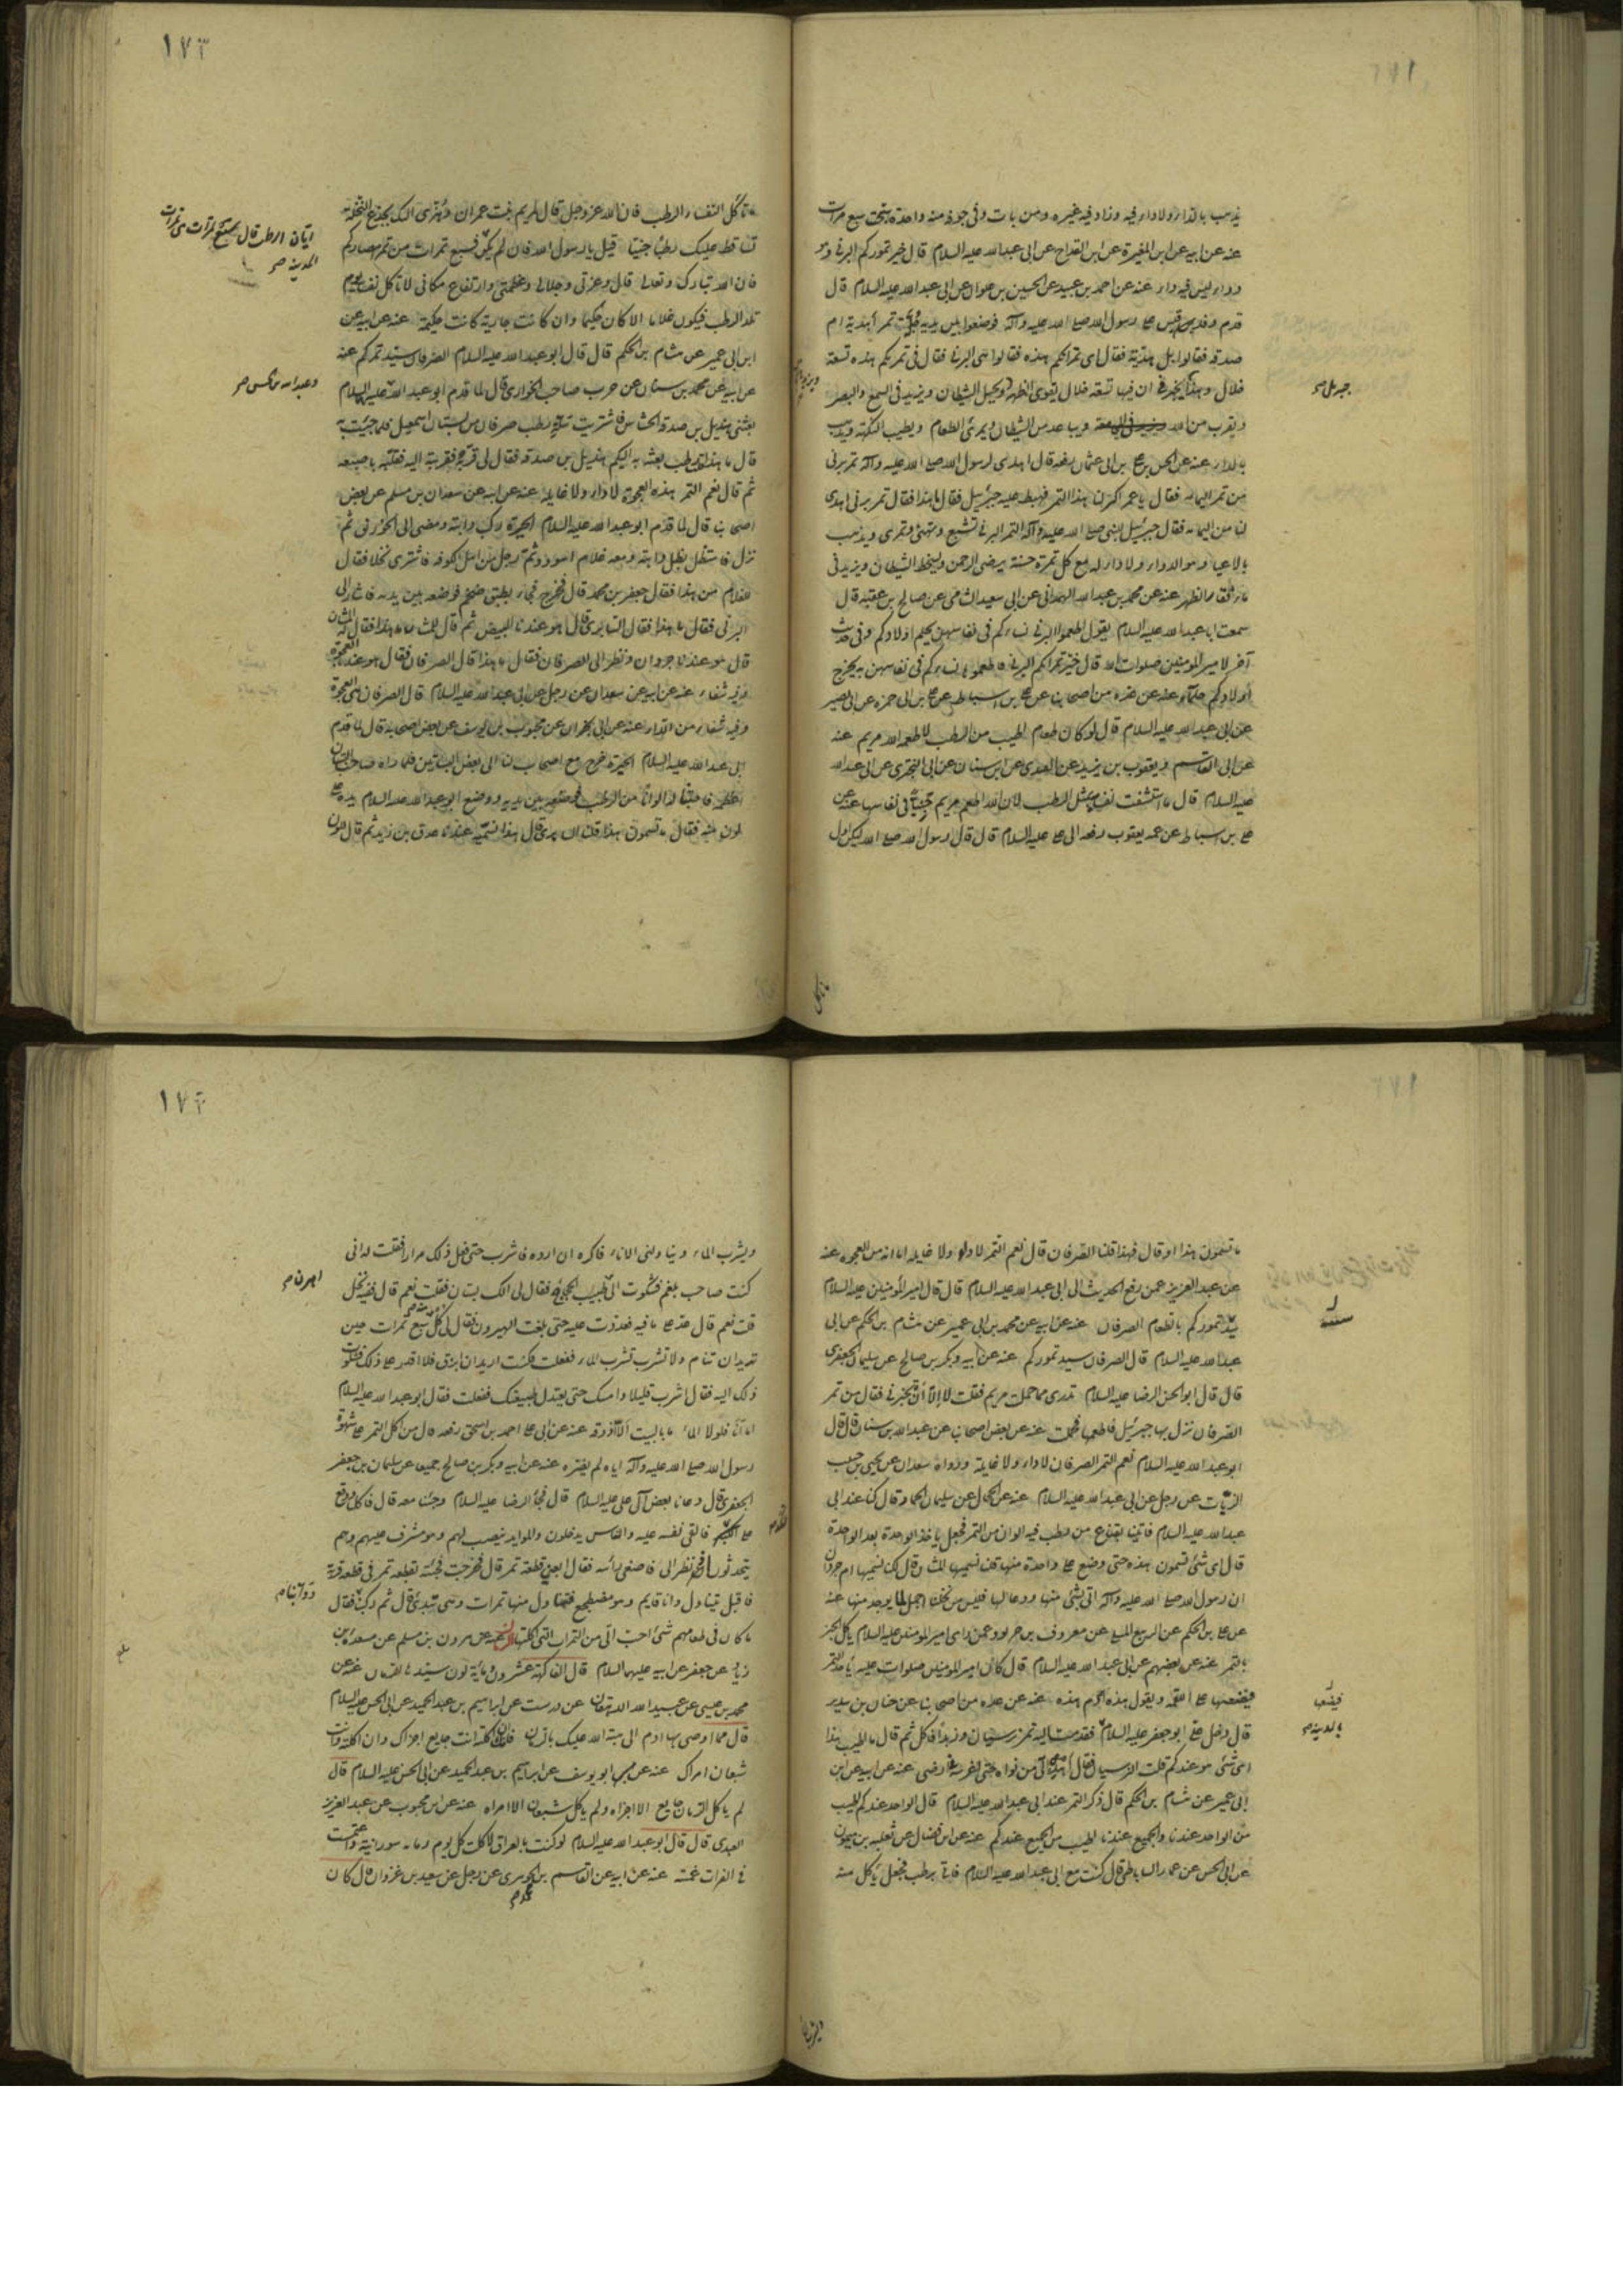 يذهب بالداء ولا داء فيه وزاد فيه غيره ومن بات وفي جوفه منه واحدة سبحت سبع مرات
عنه عن ابيه عن ابن المغيرة عن ابن القداح عن ابى عبدالله عليه السلام قال خير تموركم البرني وهو
دواء ليس فيه داء عنه عن احمد بن عبيد عن الحسين بن علوان عن ابى عبدالله عليه السلام قال
قدم وفد عبد قيس على رسول الله صلى الله عليه وآله فوضعوا بين يديه جلة تمر أهدية ام
صدقة فقالوا بل هدية فقال اى تمراتكم هذه فقالوا هى البرني فقال في تمرتكم هذه تسعة
خلال وهذا جبرئيل يخبرنى ان فيها تسعة خلال يقوى الظهر ويخبل الشيطان ويزيد في السمع والبصر
جبرئيل
ويقرب من الله ويباعد من الشيطان ويمرئ الطعام ويطيب النكهة ويذهب
بالداء عنه عن الحسن بن على بن ابى عثمان رفعه قال اهدى لرسول الله صلى الله عليه وآله تمر برنى
من تمر اليمامة فقال يا عمر اكثر لنا من هذا التمر فهبط عليه جبرئيل فقال ما هذا فقال تمر برنى اهدى
لنا من اليمامة فقال جبرئيل للنبي صلى الله عليه وآله التمر البرني يشبع ويهنئ ويمرى ويذهب
بالاعياء وهو الدواء ولا داء له مع كل تمرة حسنة يرضى الرحمن ويسخط الشيطان ويزيد فى
ماء فقار الظهر عنه عن محمد بن عبدالله الهمدانى عن ابى سعيد الشامى عن صالح بن عقبة قال
سمعت ابا عبدالله عليه السلام يقول اطعموا البرني نساءكم في نفاسهن يحلم اولادكم وفى حديث
آخر لامير المؤمنين صلوات الله قال خير تمراتكم البرني فاطعموا نساءكم في نفاسهن يخرج
أولادكم حلماء عنه عن عدة من اصحابنا عن على بن اسباط عن على بن ابى حمزة عن ابى بصير
عن ابى عبدالله عليه السلام قال لو كان طعام اطيب من الرطب لاطعمه الله مريم عنه
عن ابى القاسم ويعقوب بن يزيد عن القندى عن ابن سنان عن ابى البخترى عن ابى عبدالله
عليه السلام قال ما استشفت نفساء بمثل الرطب لان الله اطعم مريم جنيا فى نفاسها عنه عن
على بن اسباط عن عمه يعقوب رفعه الى على عليه السلام قال قال رسول الله صلى الله ليكن اول
ما تأكل
١٧٣
ما تأكل النفساء الرطب فان الله عز وجل قال لمريم بنت عمران وهزى اليك بجذع النخلة
تساقط عليك رطبا جنيا قيل يا رسول الله فان لم يكن قال فسبع تمرات من تمر امصاركم
ابان الرطب قال سبع تمرات من تمرات المدينة
فان الله تبارك وتعالى قال وعزتى وجلالى وعظمتى وارتفاع مكانى لا تأكل نفساء يوم
تلد الرطب فيكون غلاما الا كان حكيما وان كانت جارية كانت حكيمة عنه عن ابيه عن
ابن ابى عمير عن هشام بن الحكم قال قال ابو عبدالله عليه السلام الصرفان سيد تمركم عنه
عن ابيه عن محمد بن سنان عن حرب صاحب الجوارى قال لما قدم ابو عبدالله عليه السلام
بعثنى هذيل بن صدقة الحشاش فاشتريت سلة رطب صرفان من بستان اسمعيل فلما جئت به
قال ما هذا قلت رطب بعثه اليكم هذيل بن صدقة فقال لى قربه فقربته اليه فقلبه باصبعه
ثم قال نعم التمر هذه العجوة لا داء ولا غايلة عنه عن ابيه عن سعدان بن مسلم عن بعض
اصحابنا قال لما قدم ابو عبدالله عليه السلام الحيرة ركب دابته ومضى الى الخورنق ثم
نزل فاستظل بظل دابته ومعه غلام اسود وثم رجل من اهل الكوفة فاشترى نخلا فقال
للغلام من هذا فقال جعفر بن محمد قال فخرج فجاء بطبق ضخم فوضعه بين يديه فاشار الى
البرنى فقال ما هذا فقال السابرى قال هو عندنا البيض ثم قال للمشان ما هذا فقال المشان
قال هو عندنا ام جرذان ونظر الى الصرفان فقال ما هذا قال الصرفان فقال هو عندنا العجوة
وفيه شفاء عنه عن ابيه عن سعدان عن رجل عن ابى عبدالله عليه السلام قال الصرفان هى العجوة
وفيه شفاء من الداء عنه عن ابى نجران عن محبوب بن يوسف عن بعض اصحابه قال لما قدم
ابى عبدالله عليه السلام الحيرة خرج مع اصحاب لنا الى بعض البساتين فلما رآه صاحب البستان
اعظمه فاجتنى له الوانا من الرطب فوضعه بين يديه ووضع ابو عبدالله عليه السلام يده على
لون منه فقال ما تسمون هذا قلنا السابرى قال هذا نسميه عندنا عذق بن زيد ثم قال للون
ما تسمون هذا او قال فهذا قلنا الصرفان قال نعم التمر لا داء ولا غايلة اما انه من العجوة عنه
عن عبد العزيز عمن رفع الحديث الى ابى عبدالله عليه السلام قال قال امير المؤمنين عليه السلام
سيد تموركم بانعام الصرفان عنه عن ابيه عن محمد بن ابى عمير عن هشام بن الحكم عن ابى
عبدالله عليه السلام قال الصرفان سيد تموركم عنه عن ابيه وبكر بن صالح عن سليمان الجعفرى
قال قال ابو الحسن الرضا عليه السلام تدرى مما حملت مريم فقلت لا إلا أن تخبرنى فقال من تمر
الصرفان نزل بها جبرئيل فاطعمها فحملت عنه عن بعض اصحابنا عن عبدالله بن سنان قال قال
ابو عبدالله عليه السلام نعم التمر الصرفان لا داء ولا غايلة ورواه سعدان عن يحيى بن حبيب
الزيات عن رجل عن ابى عبدالله عليه السلام عنه عن الحجال عن سليمان الحماد قال كنا عند ابى
عبدالله عليه السلام فأتينا بقناع من رطب فيه الوان من التمر فجعل يأخذ الواحدة بعد الواحدة
قال اى شئ تسمون هذه حتى وضع على واحدة منها قلنا نسميها المشان قال لكنا نسميها ام جرذان
ان رسول الله صلى الله عليه وآله اتى بشئ منها ودعا لها فليس من نخل احمل لما يوجد منها عنه
عن على بن الحكم عن الربيع المسلى عن معروف بن خربوذ عمن رأى امير المؤمنين عليه السلام يأكل الخبز
بالتمر عنه عن بعضهم عن ابى عبدالله عليه السلام قال كان امير المؤمنين صلوات عليه يأخذ التمر
فيضعها على اللقمة ويقول هذه ادم هذه عنه عن عدة من اصحابنا عن حنان بن سدير
قال دخل على ابو جعفر عليه السلام فقدمت اليه تمر نرسيان وزبدا فأكل ثم قال ما اطيب هذا
بالمدينة
اى شئ هو عندكم قلت النرسيان فقال اهد الى من نواه حتى اغرسه فى ارضى عنه عن ابيه عن ابن
ابى عمير عن هشام بن الحكم قال ذكر التمر عند ابى عبدالله عليه السلام قال الواحد عندكم اطيب
من الواحد عندنا والجميع عندنا اطيب من الجميع عندكم عنه عن ابن فضال عن ثعلبة بن ميمون
عن ابى الحسن عن عمار الساباطى قال كنت مع ابى عبدالله عليه السلام فاتى برطب فجعل يأكل منه
ويشرب الماء
١٧٤
ويشرب الماء ويناولنى الاناء فاكره ان ارده فاشرب حتى فعل ذلك مرارا فقلت له انى
كنت صاحب بلغم فشكوت الى طبيب الحجاج فقال لى الك بستان فقلت نعم قال ففيه نخل
قلت نعم قال عد على ما فيه فعددت عليه حتى بلغت الهيرون فقال لى كل منه سبع تمرات حين
تريد ان تنام ولا تشرب الماء ففعلت فكنت اريد ان ابزق فلا اقدر على ذلك فشكوت
ذلك اليه فقال اشرب قليلا وامسك حتى يعتدل طبيعتك ففعلت فقال ابو عبدالله عليه السلام
اما انا فلولا الماء ما باليت ألا أذوقه عنه عن ابى على احمد بن اسحق رفعه قال من اكل التمر على شهوة
رسول الله صلى الله عليه وآله اياه لم يضره عنه عن ابيه وبكر بن صالح جميعا عن سليمان بن جعفر
الجعفرى قال دعانا بعض آل على عليه السلام قال فجاء الرضا عليه السلام وجئنا معه قال فاكل ووقع
على الكد فالقى نفسه عليه والناس يدخلون والموايد تنصب لهم وهو مشرف عليهم وهم
يتحدثون اذ نظر الى فاصغى رأسه فقال ابغنى قطعة تمر قال فخرجت فجئته بقطعة تمر فى قطعة قربة
فاقبل يتناول وانا قايم وهو مضطجع فتناول منها تمرات وهى بيدى قال ثم ركبنا فقال
ما كان فى طعامهم شئ احب الى من التمرات التى اكلتها عنه عن هرون بن مسلم عن مسعدة بن
زياد عن جعفر عن ابيه عليهما السلام قال الفاكهة عشرون ومائة لون سيدها الرمان عنه عن
محمد بن عيسى عن عبيدالله الدهقان عن درست عن ابراهيم بن عبد الحميد عن ابى الحسن عليه السلام
قال مما اوصى به آدم الى هبة الله عليك بالرمان فانك ان اكلته وانت جايع اجزاك وان اكلته وانت
شبعان امراك عنه عن ابى يوسف عن ابراهيم بن عبد الحميد عن ابى الحسن عليه السلام قال
لم ياكل الرمان جايع الا اجزاه ولم ياكل شبعان الا امراه عنه عن ابن محبوب عن عبد العزيز
العبدى قال قال ابو عبدالله عليه السلام لو كنت بالعراق لاكلت كل يوم رمانة سورانية واغتمست
فى الفرات غمسة عنه عن ابيه عن القاسم بن الجوهرى عن رجل عن سعيد بن غزوان قال كان